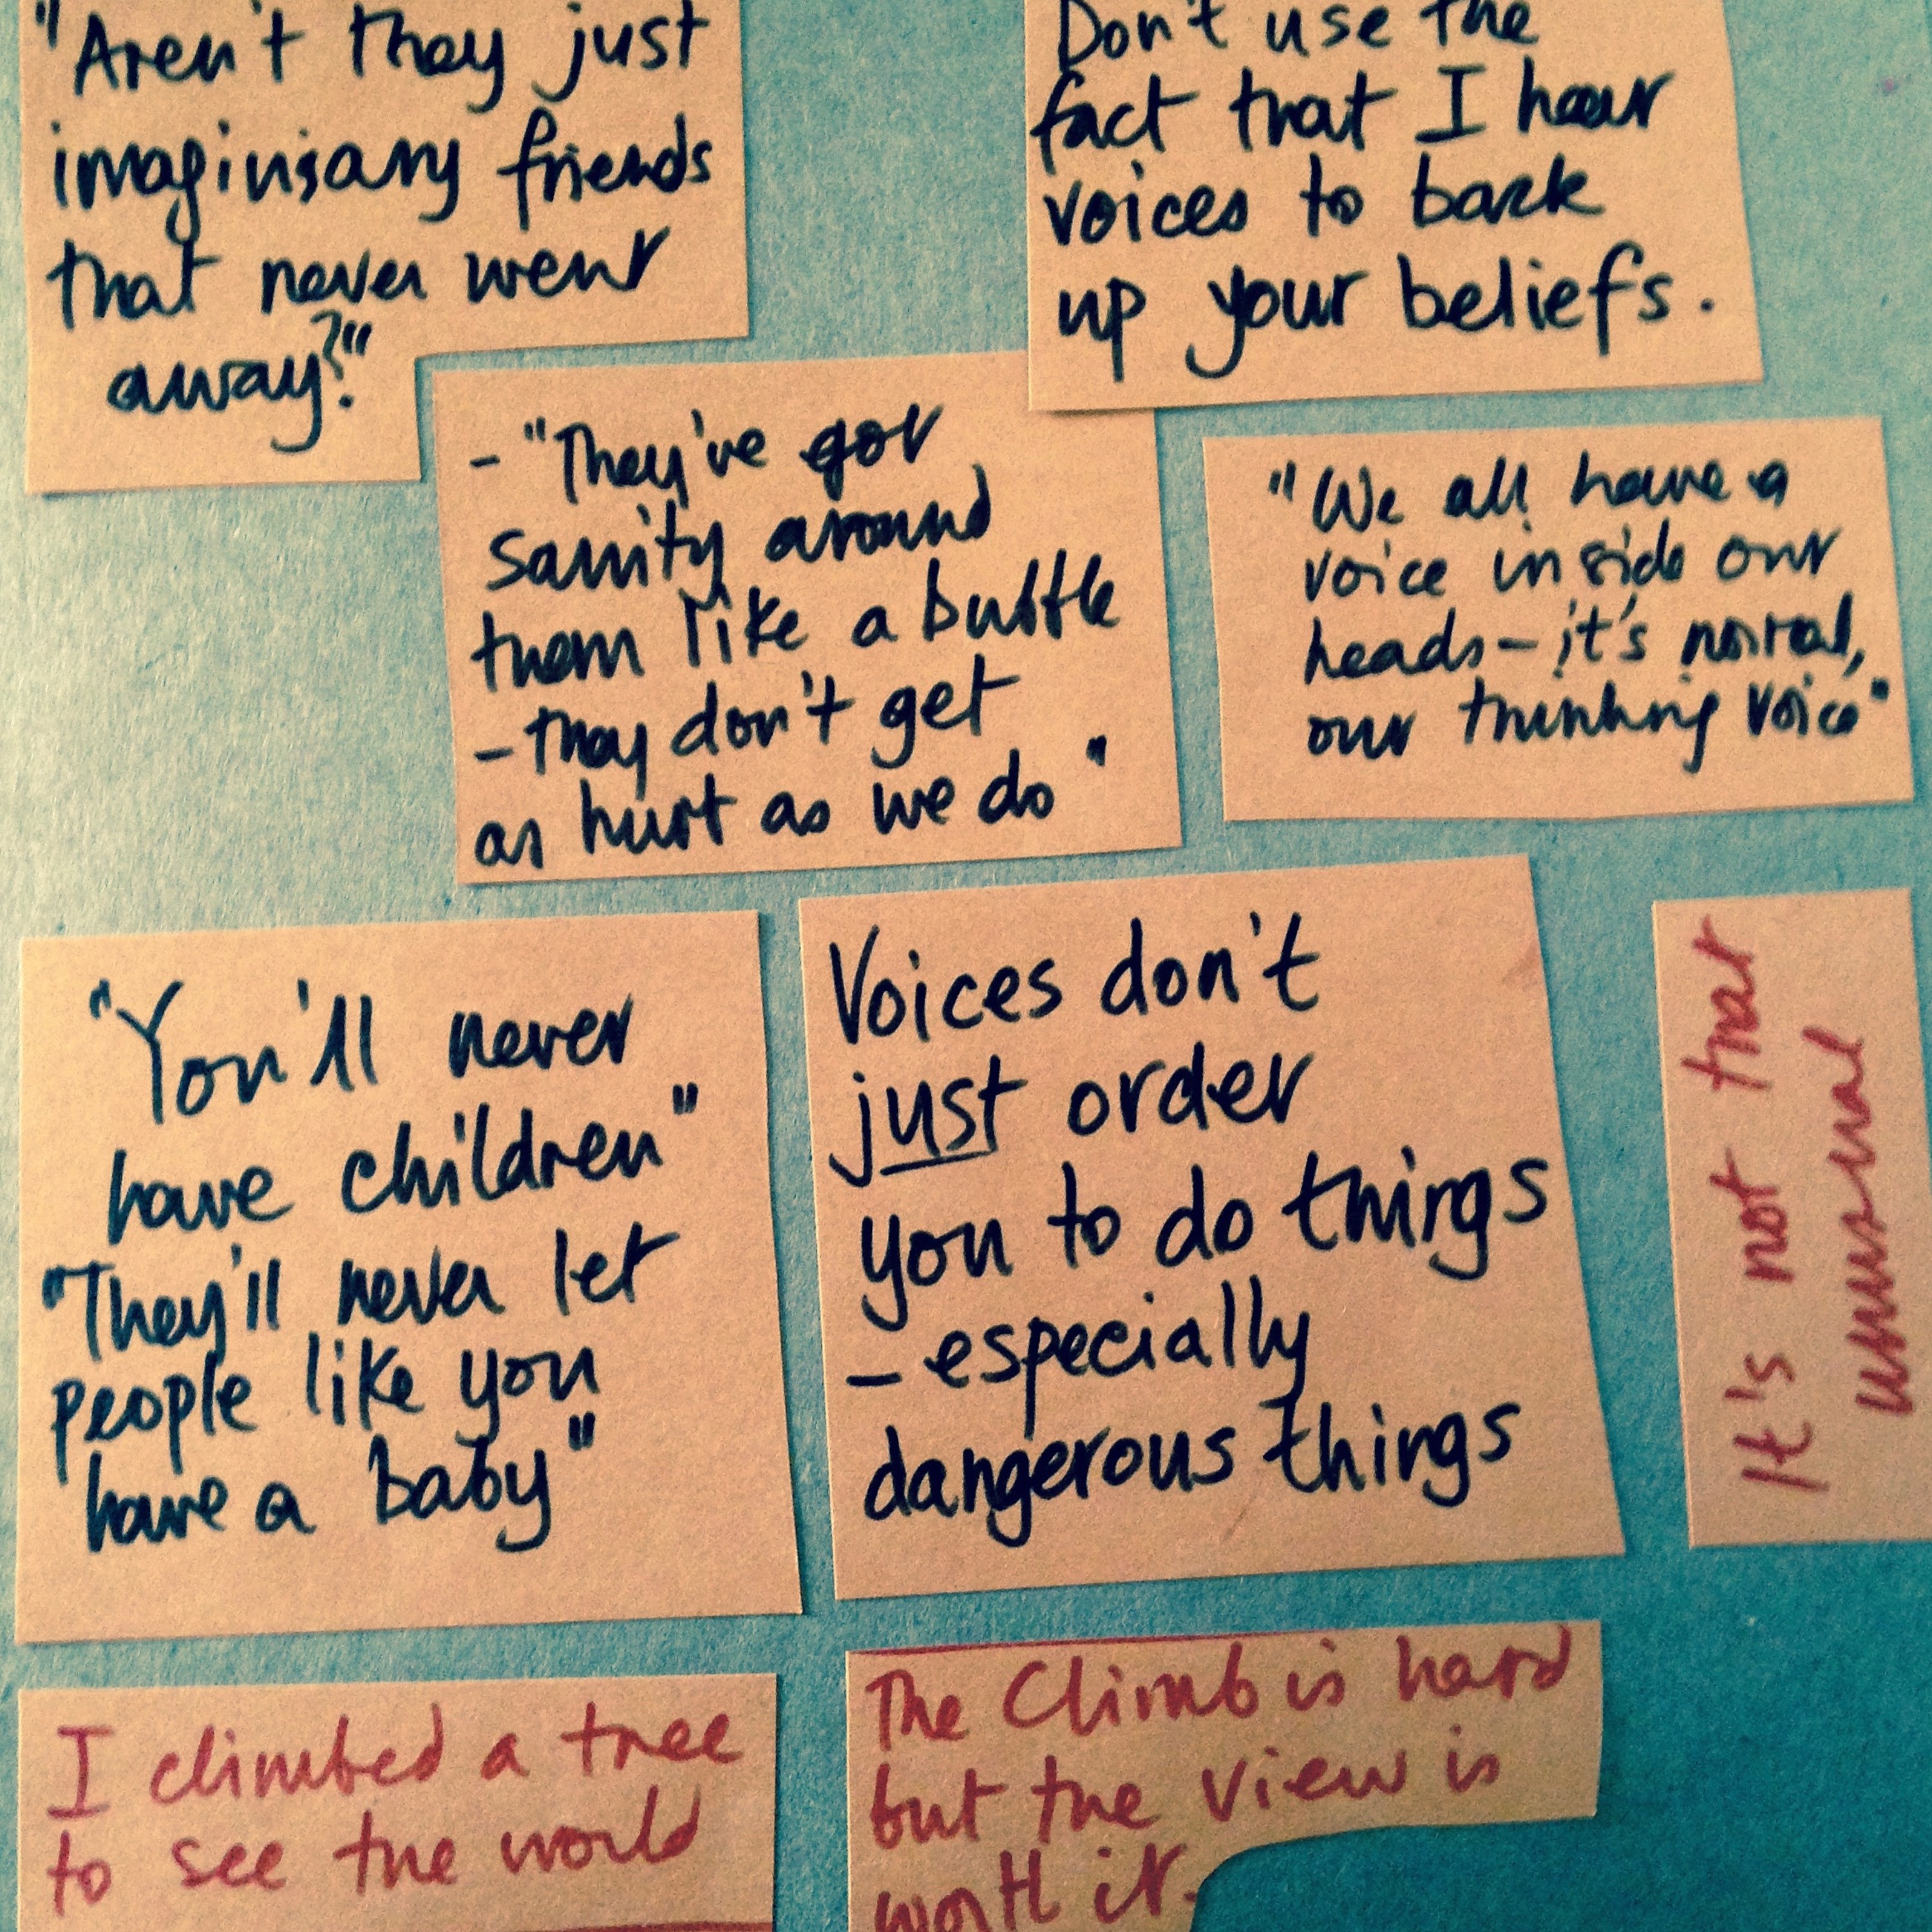 "Aren't they just
imaginisary friends
that never went
away?"
Don't use the
fact that I hear
voices to back
up your beliefs.
- "They've got
sanity around
them like a bubble
- they don't get
as hurt as we do"
"We all have a
voice inside our
heads - it's normal,
our thinking voice"
"You'll never
have children"
"They'll never let
people like you
have a baby"
Voices don't
just order
you to do things
- especially
dangerous things
It's not that
unusual
I climbed a tree
to see the world
The Climb is hard
but the view is
worth it.